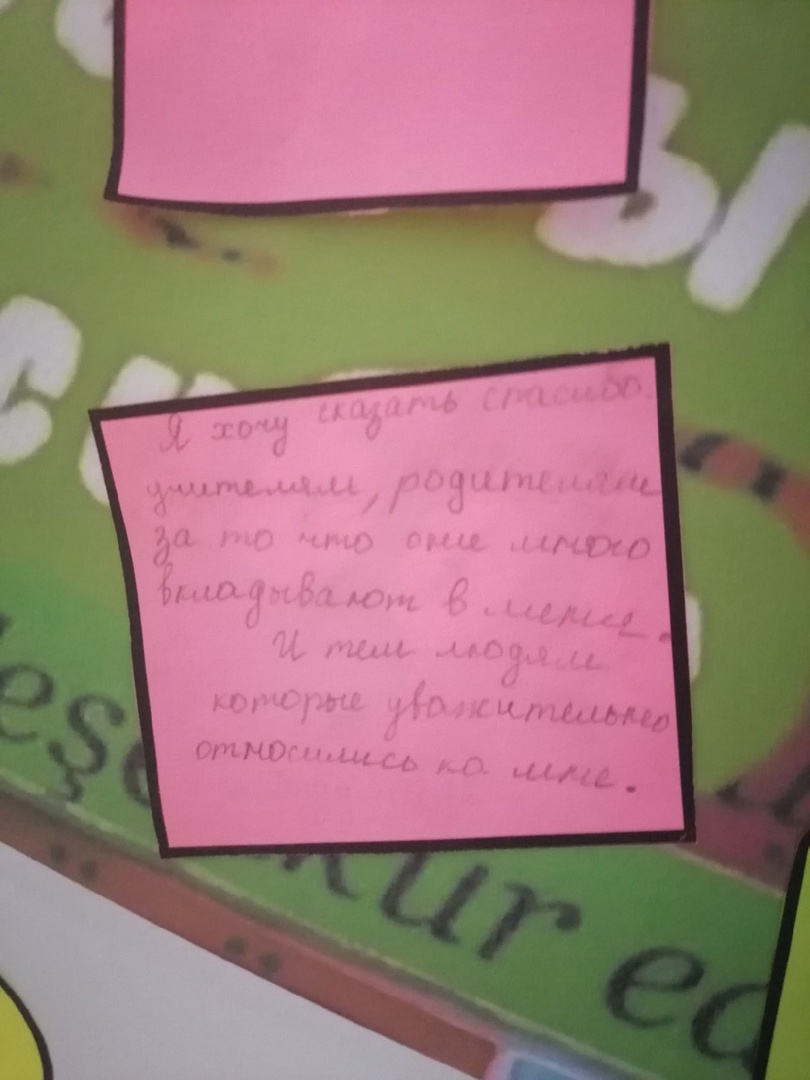 ы
сп
Я хочу сказать спасибо.
учителям, родителям
за то что они много
вкладывают в меня.
И тем людям
которые уважительно
относились ко мне.
eşe
kür ed